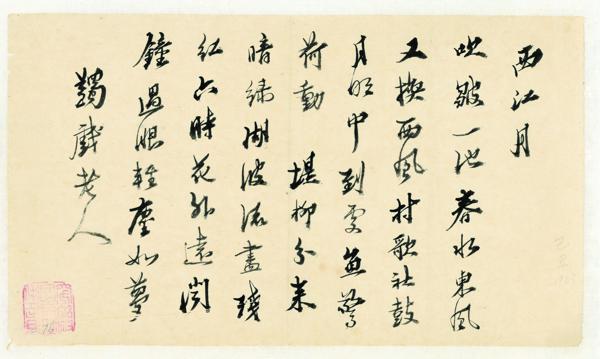 西江月
吹皺一池春水東風
又換西風村歌社鼓
月明中到處魚驚
荷動 堤柳分來
暗綠湖波流盡殘
紅六時花外遠聞
鐘過眼輕塵如夢
蠲戲老人